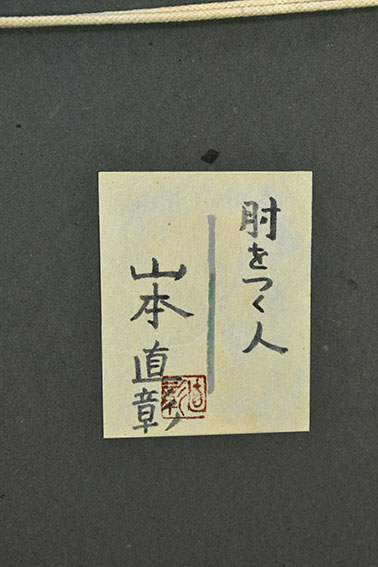 肘をつく人
山本 直彰